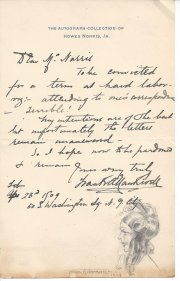 THE AUTOGRAPH COLLECTION OF
HOWES NORRIS, JR.
Dear Mr Norris
To be convicted
for a term at hard labor
attending to one's correspondence
terrible!
My intentions are of the best
but unfortunately the letters
remain unanswered
So I hope now to be pardoned
& remain
Yours very truly
23d 1909
Washington Sq N.Y. City